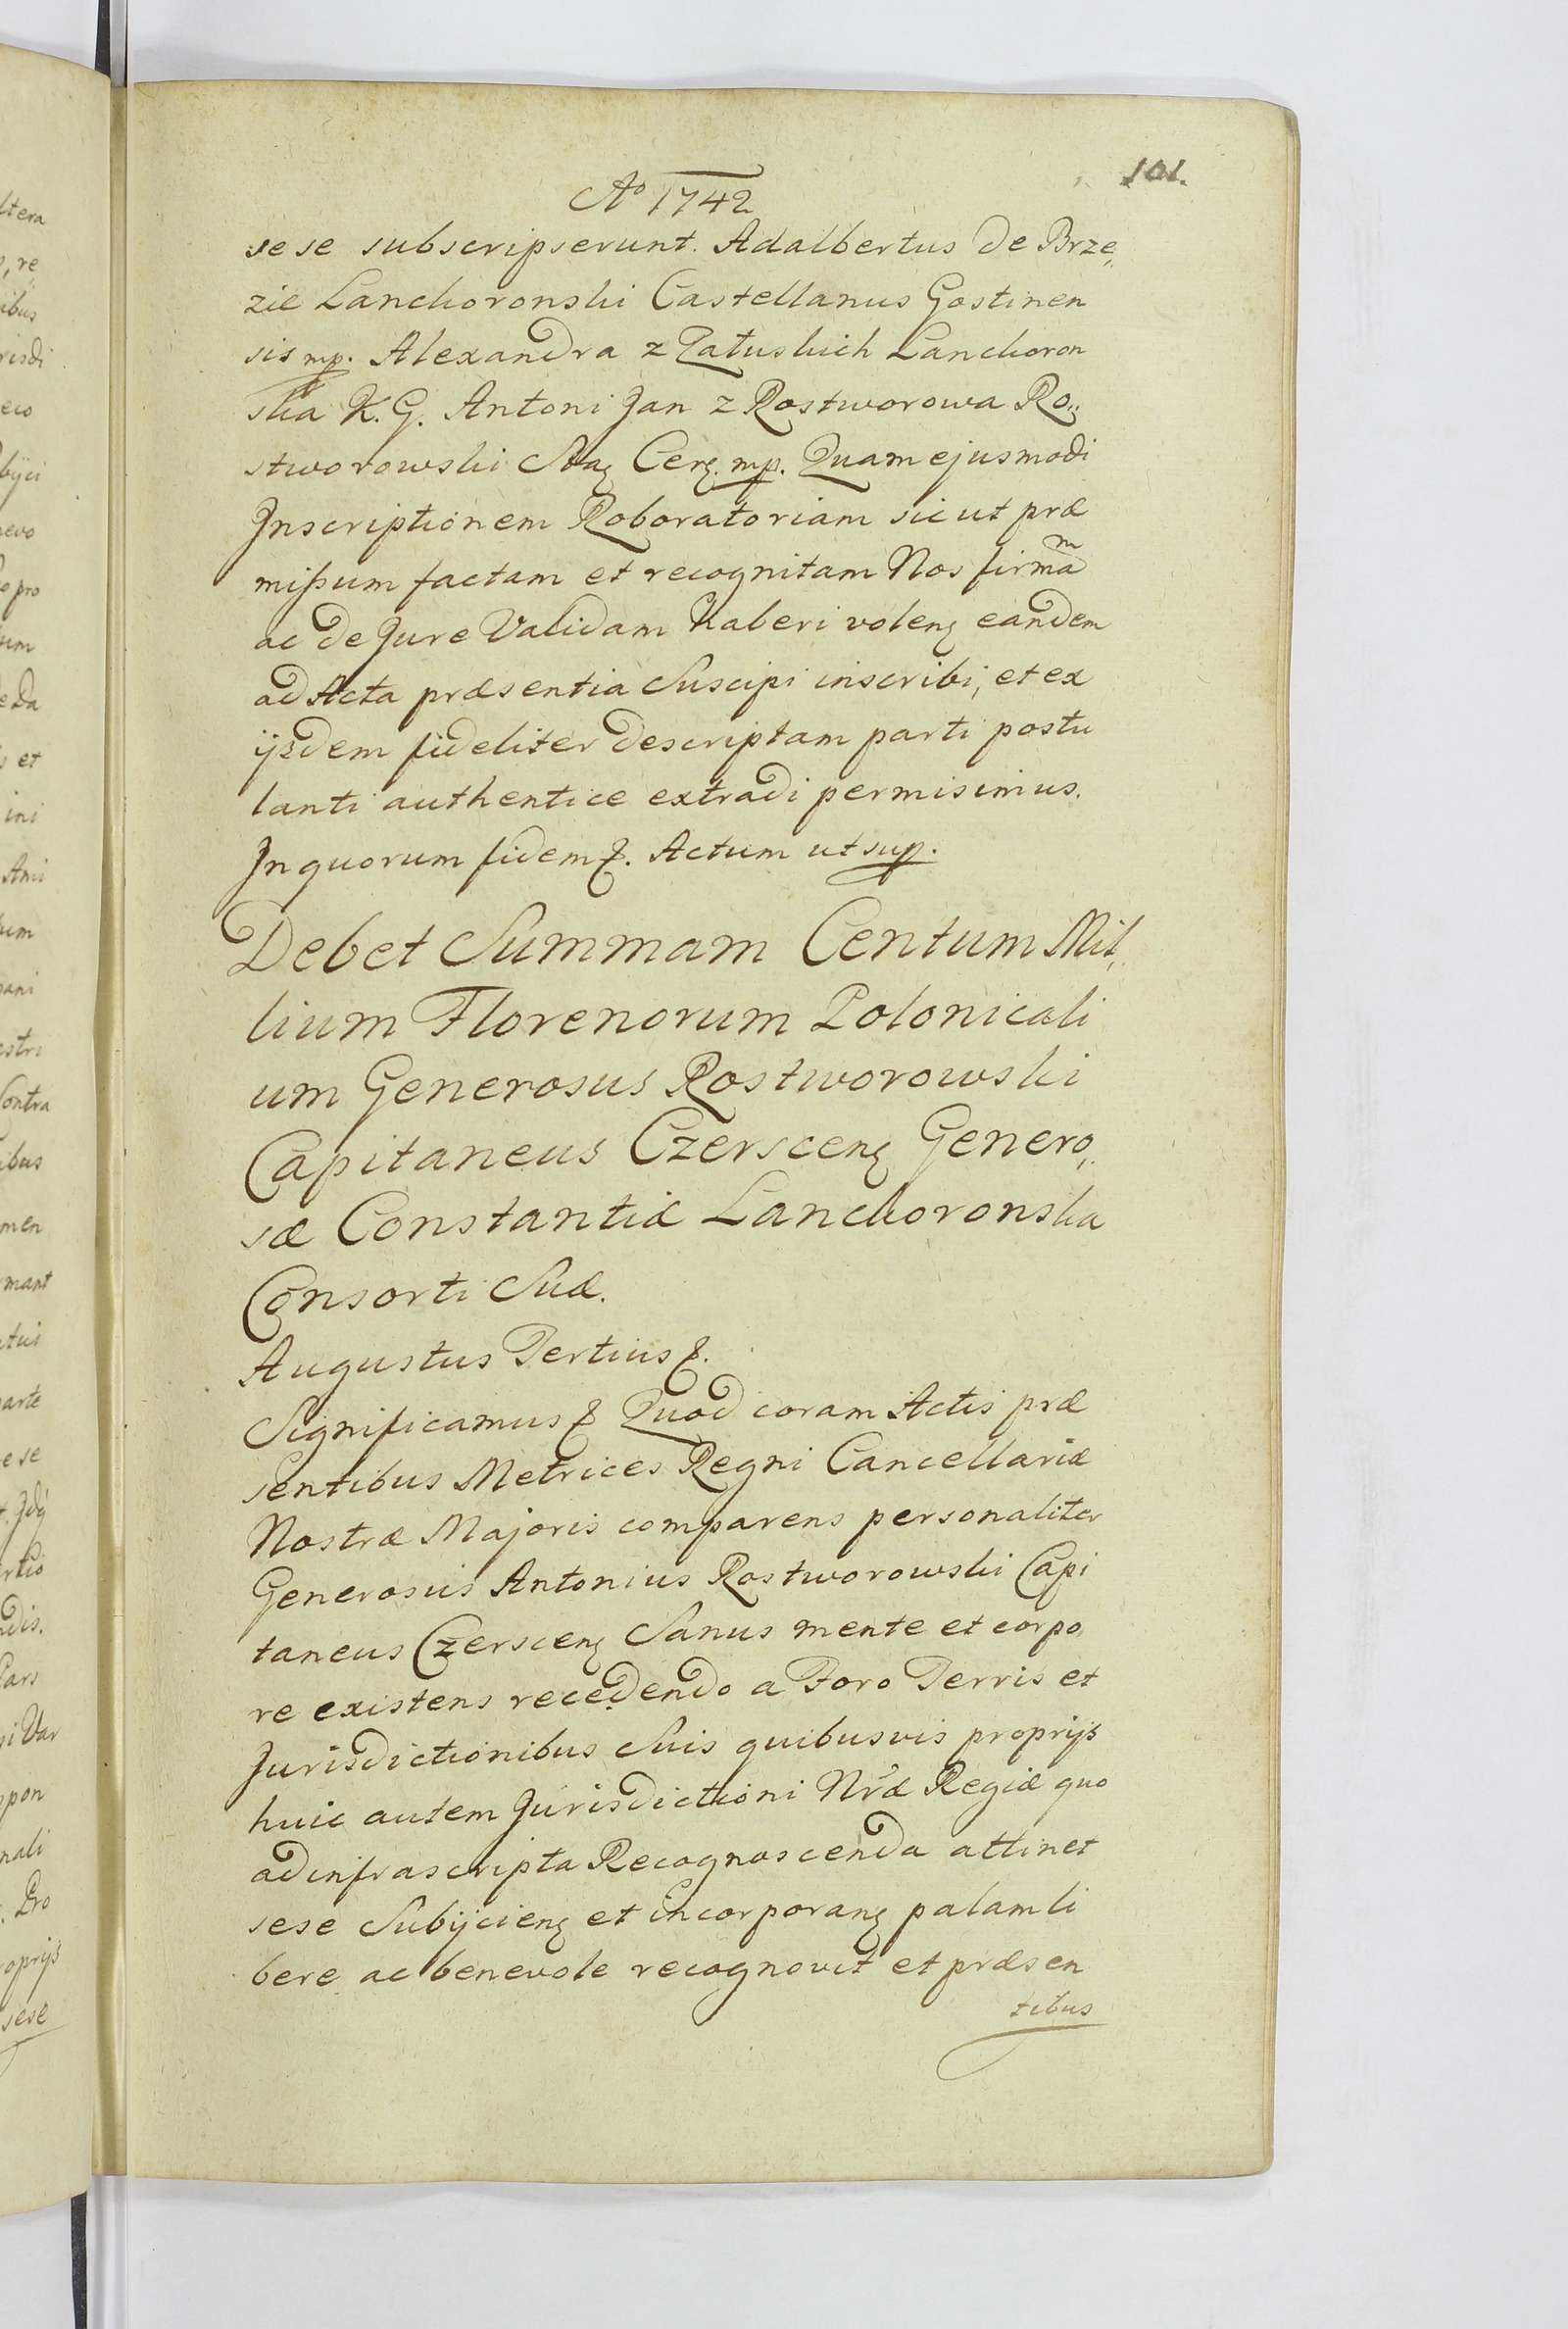 101.
Aº 1742
sese subscripserunt. Adalbertus de Brze„
zie Lanckoronski Castellanus Gostinen
sis mp. Alexandra z Załuskich Lanckoron
ska K. G. Antoni Jan z Rostworowa Ro„
stworowski Cerę. mp. Quam ejusmodi
Inscriptionem Roboratoriam sicut præ
mißum factam et recognitam Nos firmam
ac de Jure Validam haberi volenę eandem
ad Acta præsentia Suscipi inscribi, et ex
ijsdem fideliter descriptam parti postu
lanti authentice extradi permisimus.
In quorum fidem &. Actum ut sup.
Debet Summam Centum Mil„
lium Florenorum Polonicali
um Generosus Rostworowski
Capitaneus Czerscenę Genero„
sæ Constantiæ Lanckoronska
Consorti Suæ.
Augustus Tertius &.
Significamus & Quod coram Actis præ
sentibus Metrices Regni Cancellariæ
Nostræ Majoris comparens personaliter
Generosus Antonius Rostworowski Capi
taneus Czerscenę Sanus mente et corpo
re existens recedendo a Foro Terris et
Jurisdictionibus Suis quibusvis proprijs
huic autem Jurisdictioni Nræ Regiæ quo
ad infrascripta Recognoscenda attinet
sese Subijcienę et incorporanę palam li
bere ac benevole recognovit et præsen
tibus